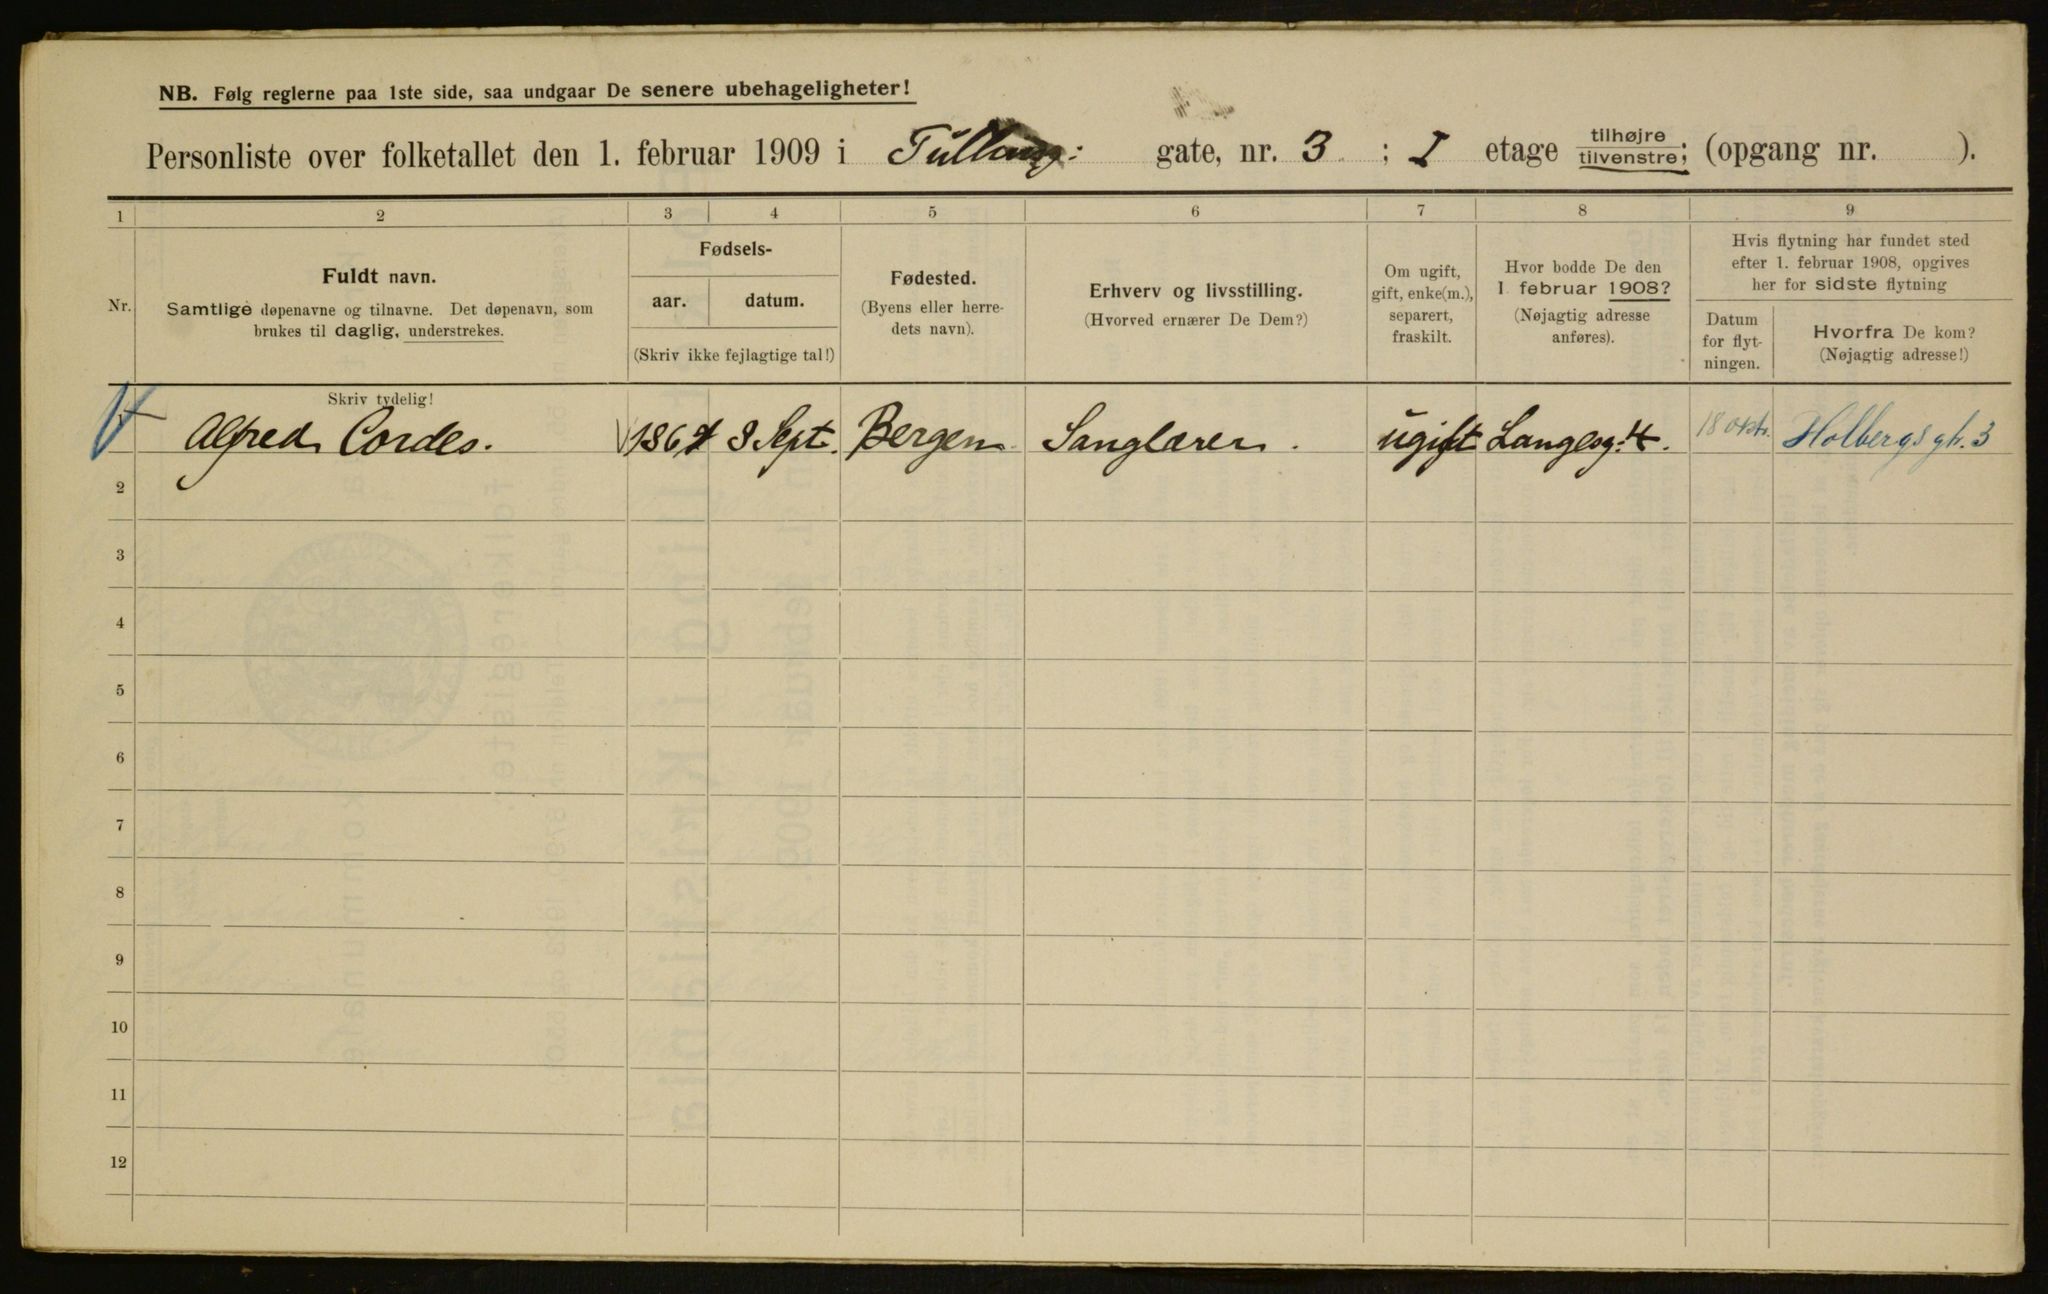 NB. Følg reglerne paa 1ste side, saa undgaar De senere ubehageligheter!
Personliste over folketallet den 1. februar 1909 i Tullins: gate, nr. 3 ; I etage tilhøjre tilvenstre; (opgang nr. ).
1 2 3 4 5 6 7 8 9
Nr.
Fuldt navn.
Samtlige døpenavne og tilnavne. Det døpenavn, som
brukes til daglig, understrekes.
Fødsels-
aar. datum.
(Skriv ikke fejlagtige tal!)
Fødested.
(Byens eller herre-
dets navn).
Erhverv og livsstilling.
(Hvorved ernærer De Dem?)
Om ugift,
gift, enke(m.),
separert,
fraskilt.
Hvor bodde De den
1. februar 1908?
(Nøjagtig adresse
anføres).
Hvis flytning har fundet sted
efter 1. februar 1908, opgives
her for sidste flytning
Datum
for flyt-
ningen.
Hvorfra De kom?
(Nøjagtig adresse!)
Skriv tydelig!
Alfred Cordes. 8 Sept. Bergen Sanglærer. ugift Langesg: 4. 18 okt. Holbergs gt. 3
2
3
4
5
6
7
8
9
10
11
12